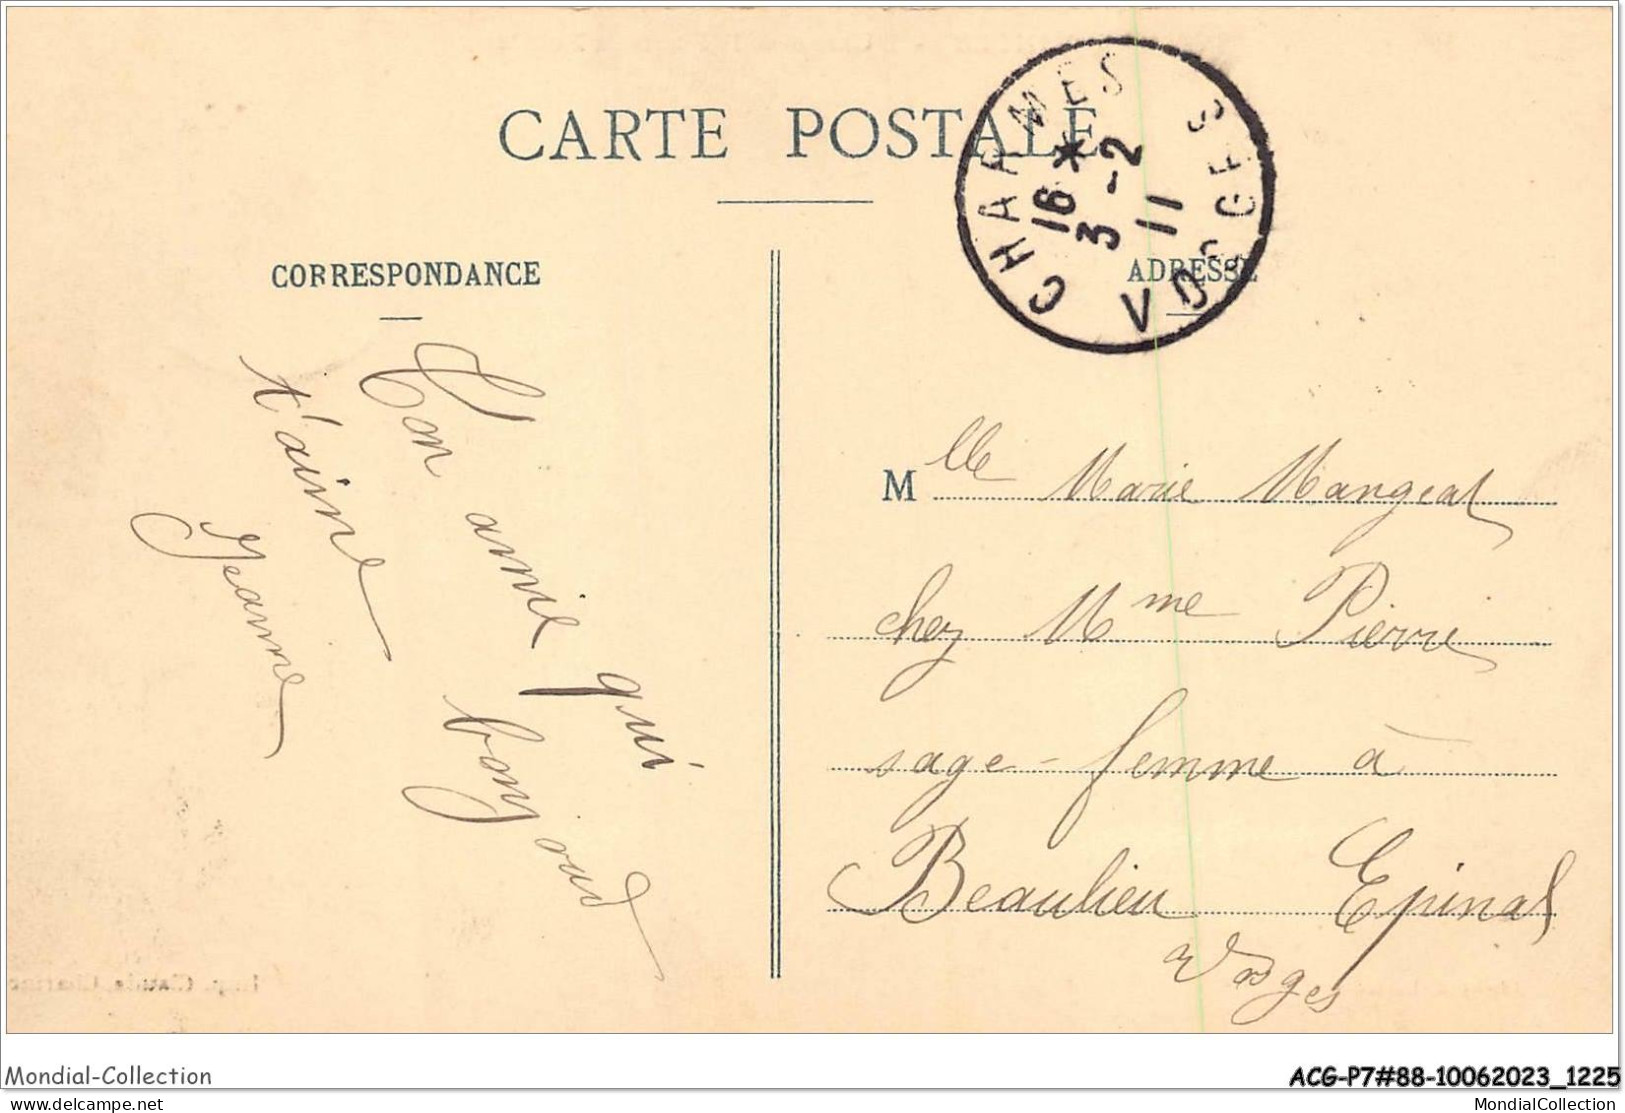 CARTE POSTALE
CHARMES
16 *
3 -2
11
VOSGES
CORRESPONDANCE
ADRESSE
Ton amie qui
t'aime bonjour
Jeanne
Mlle Marie Mangeat
chez Mme Pierre
sage-femme à
Beaulieu Epinal
Vosges
Mondial-Collection
ACG-P7#88-10062023_1225
delcampe.net
MondialCollection